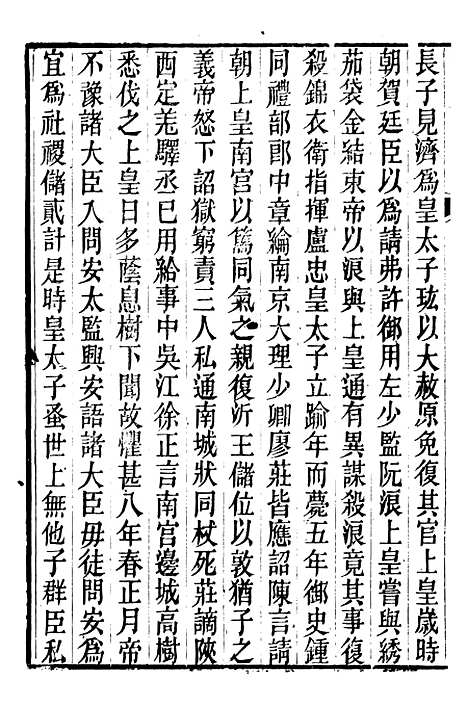 長子見濟爲皇太子玹以大赦原免復其官上皇歲時
朝賀廷臣以爲請弗許御用左少監阮浪上皇嘗與綉
茄袋金結束帝以浪與上皇通有異謀殺浪竟其事復
殺錦衣衛指揮盧忠皇太子立踰年而薨五年御史鍾
同禮部郎中章綸南京大理少卿廖莊皆應詔陳言請
朝上皇南宮以篤同氣之親復沂王儲位以敦猶子之
義帝怒下詔獄窮責三人私通南城狀同杖死莊謫陜
西定羌驛丞巳用給事中吳江徐正言南宮邊城高樹
悉伐之上皇日多蔭息樹下聞故懼甚八年春正月帝
不豫諸大臣入問安太監興安語諸大臣毋徒問安爲
宜爲社稷儲貳計是時皇太子蚤世上無他子群臣私